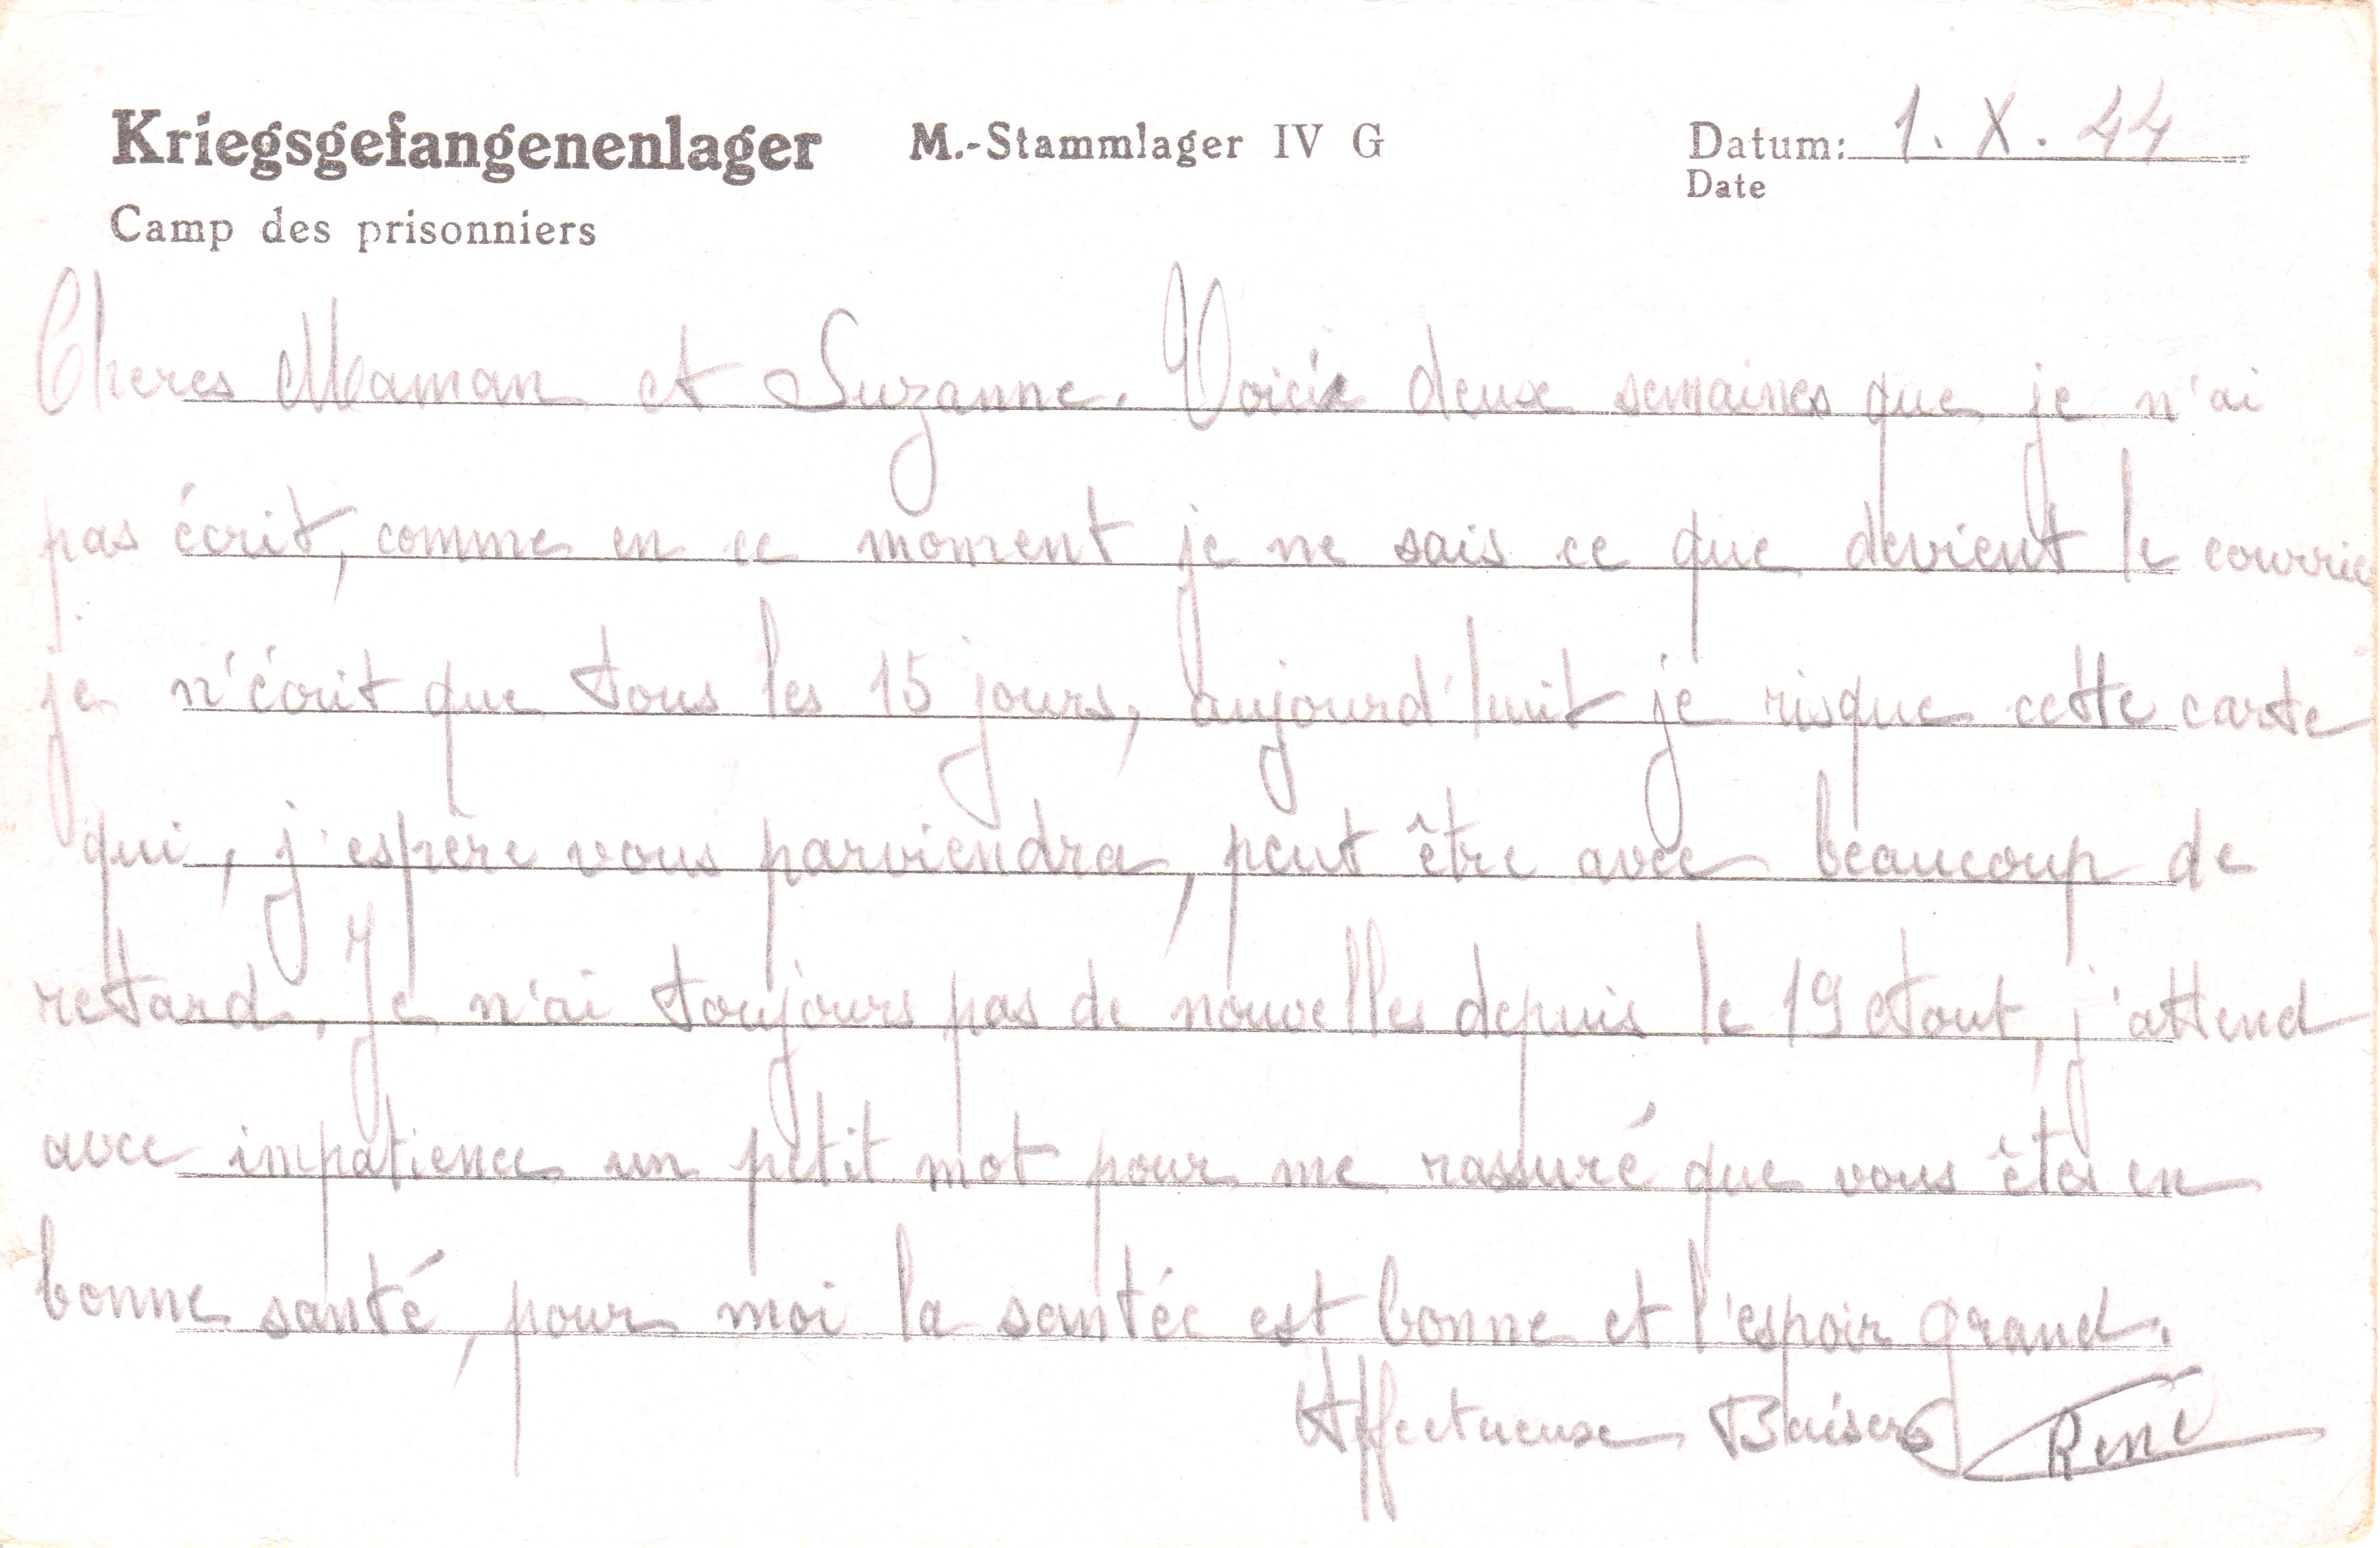 Kriegsgefangenenlager M.-Stammlager IV G Datum: 1. X. 44
Camp des prisonniers Date
Cheres Maman et Suzanne. Voici deux semaines que je n'ai
pas écrit, comme en ce moment je ne sais ce que devient le courrie
je n'écrit que tous les 15 jours, aujourd'huit je risque cette carte
qui, j'espère vous parviendra, peut être avec beaucoup de
retard. Je n'ai toujours pas de nouvelles depuis le 19 Aout, j'attend
avec impatience un petit mot pour me rassuré que vous êtes en
bonne santé, pour moi la santée est bonne et l'espoir grand.
Affectueuse Baisers René